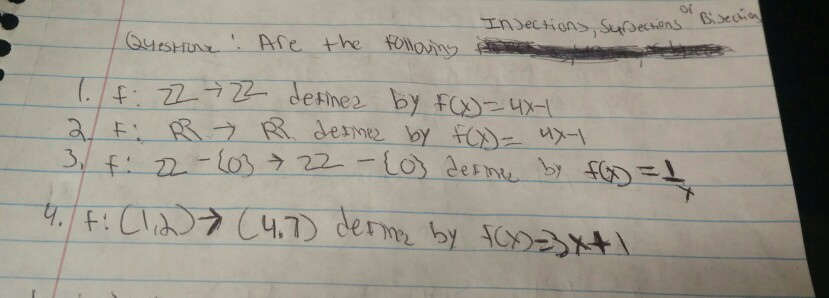 Injections, Surjections or Bijection
Question: Are the following
1. f: ZZ → ZZ defined by f(x)=4x-1
2. f: RR → RR defined by f(x)= 4x-1
3. f: ZZ - {0} → ZZ - {0} define by f(x) = 1/x
4. f: (1,2) → (4,7) define by f(x)=3x+1